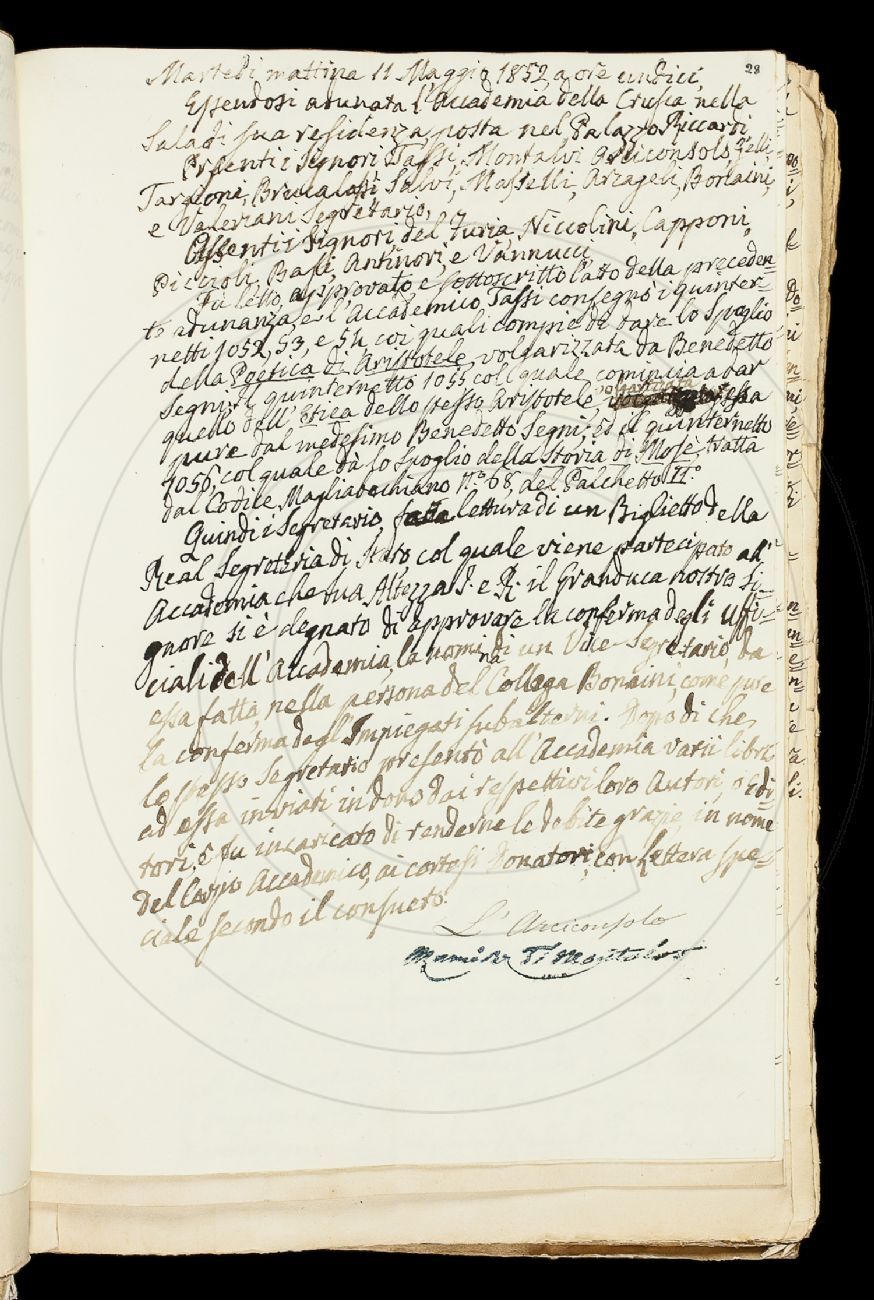 28
Martedì mattina 11 Maggio 1852, a ore undici,
Essendosi adunata l'Accademia della Crusca, nella
Sala di sua residenza, posta nel Palazzo Riccardi,
Presenti i Signori Tassi, Montalvi Arciconsolo, Zelli,
Targioni, Brucalassi, Salvi, Masselli, Arcageli, Bonaini,
e Valeriani Segretario,
Assenti i Signori, del Furia, Niccolini, Capponi,
Piccioli, Basi, Antinori, e Vannucci,
Fu letto, approvato e sottoscritto l'atto della preceden=
te adunanza, e l'Accademico Tassi consegnò i quinter=
netti 1052, 53, e 54, coi quali compie di dare lo Spoglio
della Poetica di Aristotele, volgarizzata da Benedetto
Segni; il quinternetto 1055 col quale comincia a dar
quello dell'Etica dello stesso Aristotele, volgarizzata essa
pure dal medesimo Benedetto Segni; ed il quinternetto
1056, col quale dà lo Spoglio della Storia di Mosè, tratta
dal Codice Magliabechiano N.° 68, del Palchetto II.°
Quindi i Segretario, fatta lettura di un Biglietto della
Real Segreteria di Stato, col quale viene partecipato all'
Accademia che sua Altezza I. e R. il Granduca nostro Si=
gnore si è degnato di approvare la conferma degli Uffi=
ciali dell'Accademia, la nomina di un Vice-Segretario, da
essa fatta, nella persona del Collega Bonaini, come pure
la conferma degl'Impiegati subalterni. Dopo di che,
lo stesso Segretario presentò all'Accademia varii libri,
ad essa inviati in dono dai respettivi loro Autori, o Edi=
tori. E fu incaricato di renderne le debite grazie, in nome
del Corpo Accademico, ai cortesi Donatori, con lettera spe=
ciale secondo il consueto.
L'Arciconsolo